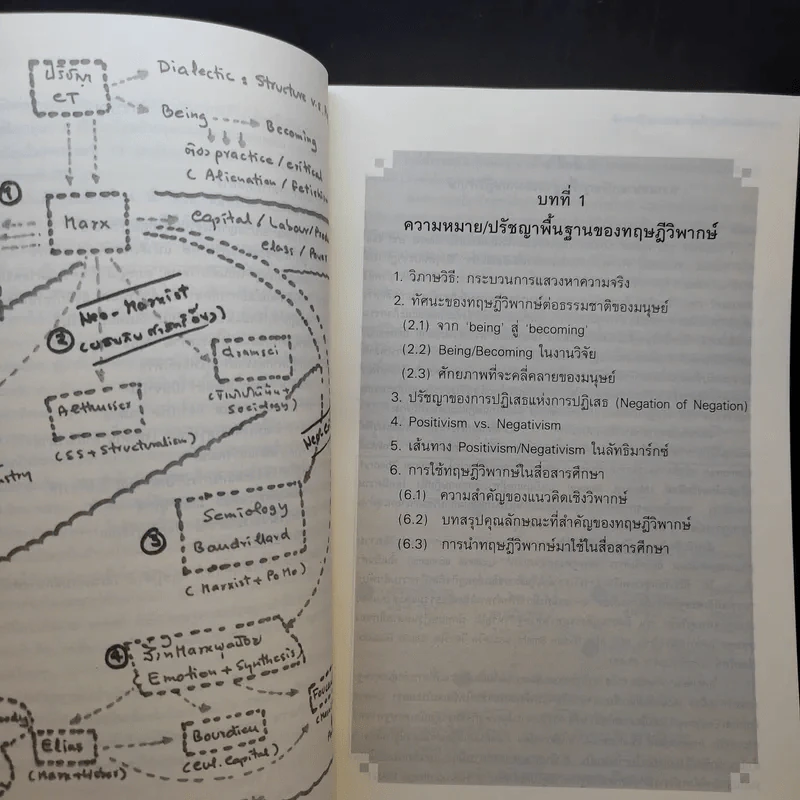 ปรัชญา
CT
Dialectic : Structure v.s.
Being
Becoming
practice / critical
( Alienation / Fetishism
①
Marx
Capital / Labour /
Class / Power
Neo-Marxist
②
Gramsci
Sociology)
Althusser
(SS + Structuralism)
③
Semiology
Baudrillard
(Marxist + PoMo)
④
Emotion + Synthesis
Elias
(Marx + Weber)
Bourdieu
(Cul. Capital)
บทที่ 1
ความหมาย/ปรัชญาพื้นฐานของทฤษฎีวิพากษ์
1. วิภาษวิธี: กระบวนการแสวงหาความจริง
2. ทัศนะของทฤษฎีวิพากษ์ต่อธรรมชาติของมนุษย์
(2.1) จาก 'being' สู่ 'becoming'
(2.2) Being/Becoming ในงานวิจัย
(2.3) ศักยภาพที่จะคลี่คลายของมนุษย์
3. ปรัชญาของการปฏิเสธแห่งการปฏิเสธ (Negation of Negation)
4. Positivism vs. Negativism
5. เส้นทาง Positivism/Negativism ในลัทธิมาร์กซ์
6. การใช้ทฤษฎีวิพากษ์ในสื่อสารศึกษา
(6.1) ความสำคัญของแนวคิดเชิงวิพากษ์
(6.2) บทสรุปคุณลักษณะที่สำคัญของทฤษฎีวิพากษ์
(6.3) การนำทฤษฎีวิพากษ์มาใช้ในสื่อสารศึกษา